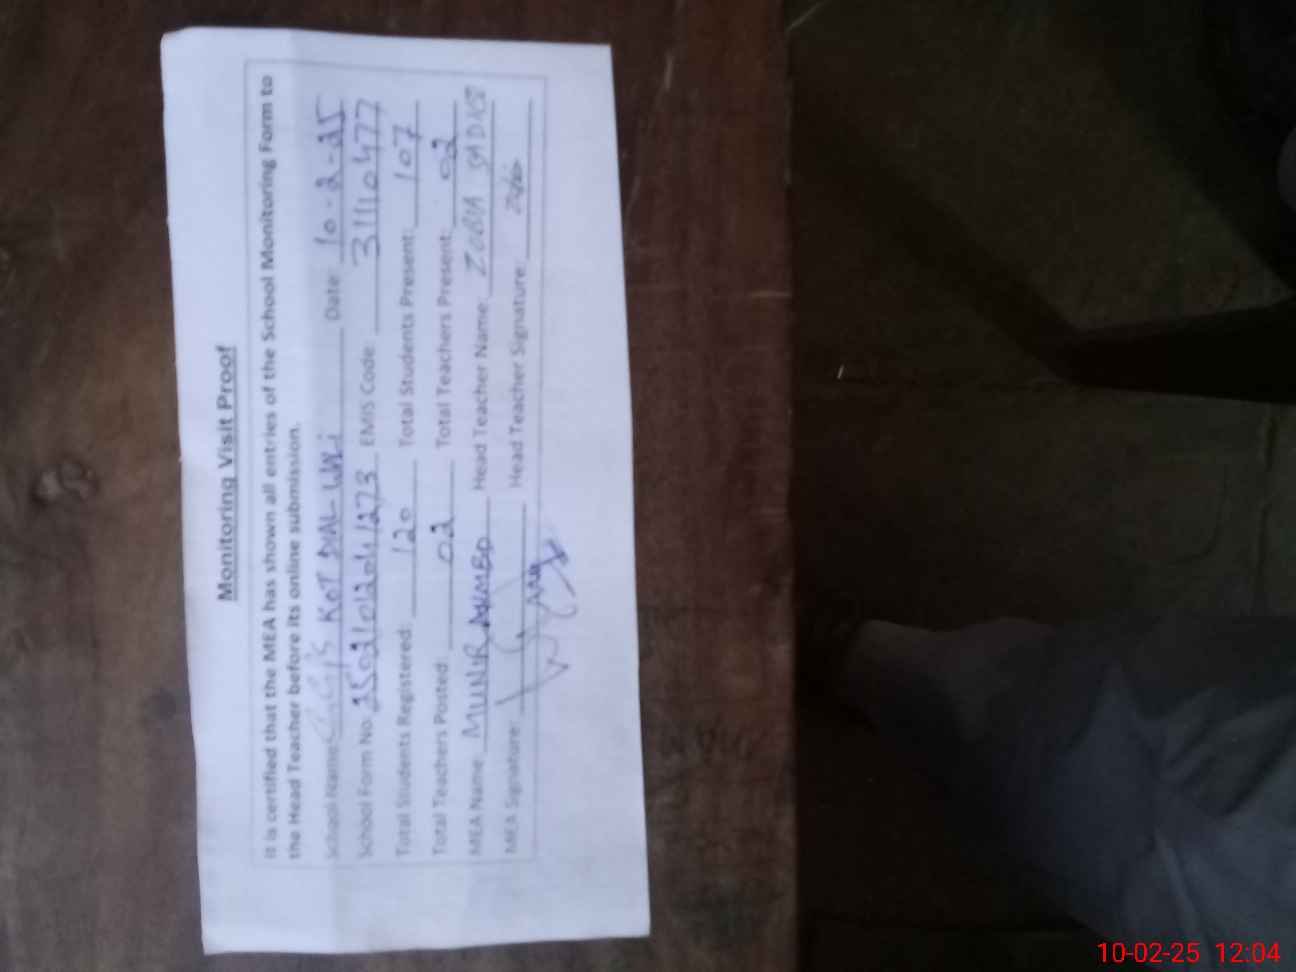 Monitoring Visit Proof
It is certified that the MEA has shown all entries of the School Monitoring Form to
the Head Teacher before its online submission.
School Name: KOT DIAL Date: 10-2-25
School Form No: 25021012041273 EMIS Code: 31110477
Total Students Registered: 120 Total Students Present: 107
Total Teachers Posted: 02 Total Teachers Present: 02
MEA Name: MUNIR Head Teacher Name: ZOBIA
MEA Signature: Head Teacher Signature:
10-02-25 12:04